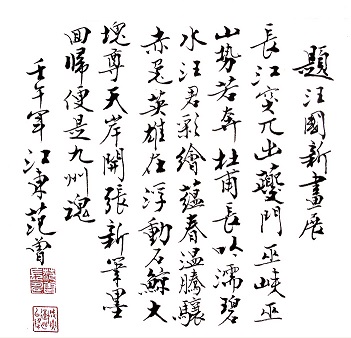 題汪國新畫展
長江突兀出夔門巫峽巫
山勢若奔杜甫長吟濡碧
水汪君彩繪蘊春溫騰驤
赤兔英雄在浮動石鯨大
塊尊天岸開張新筆墨
回歸便是九州魂
壬午年江東范曾